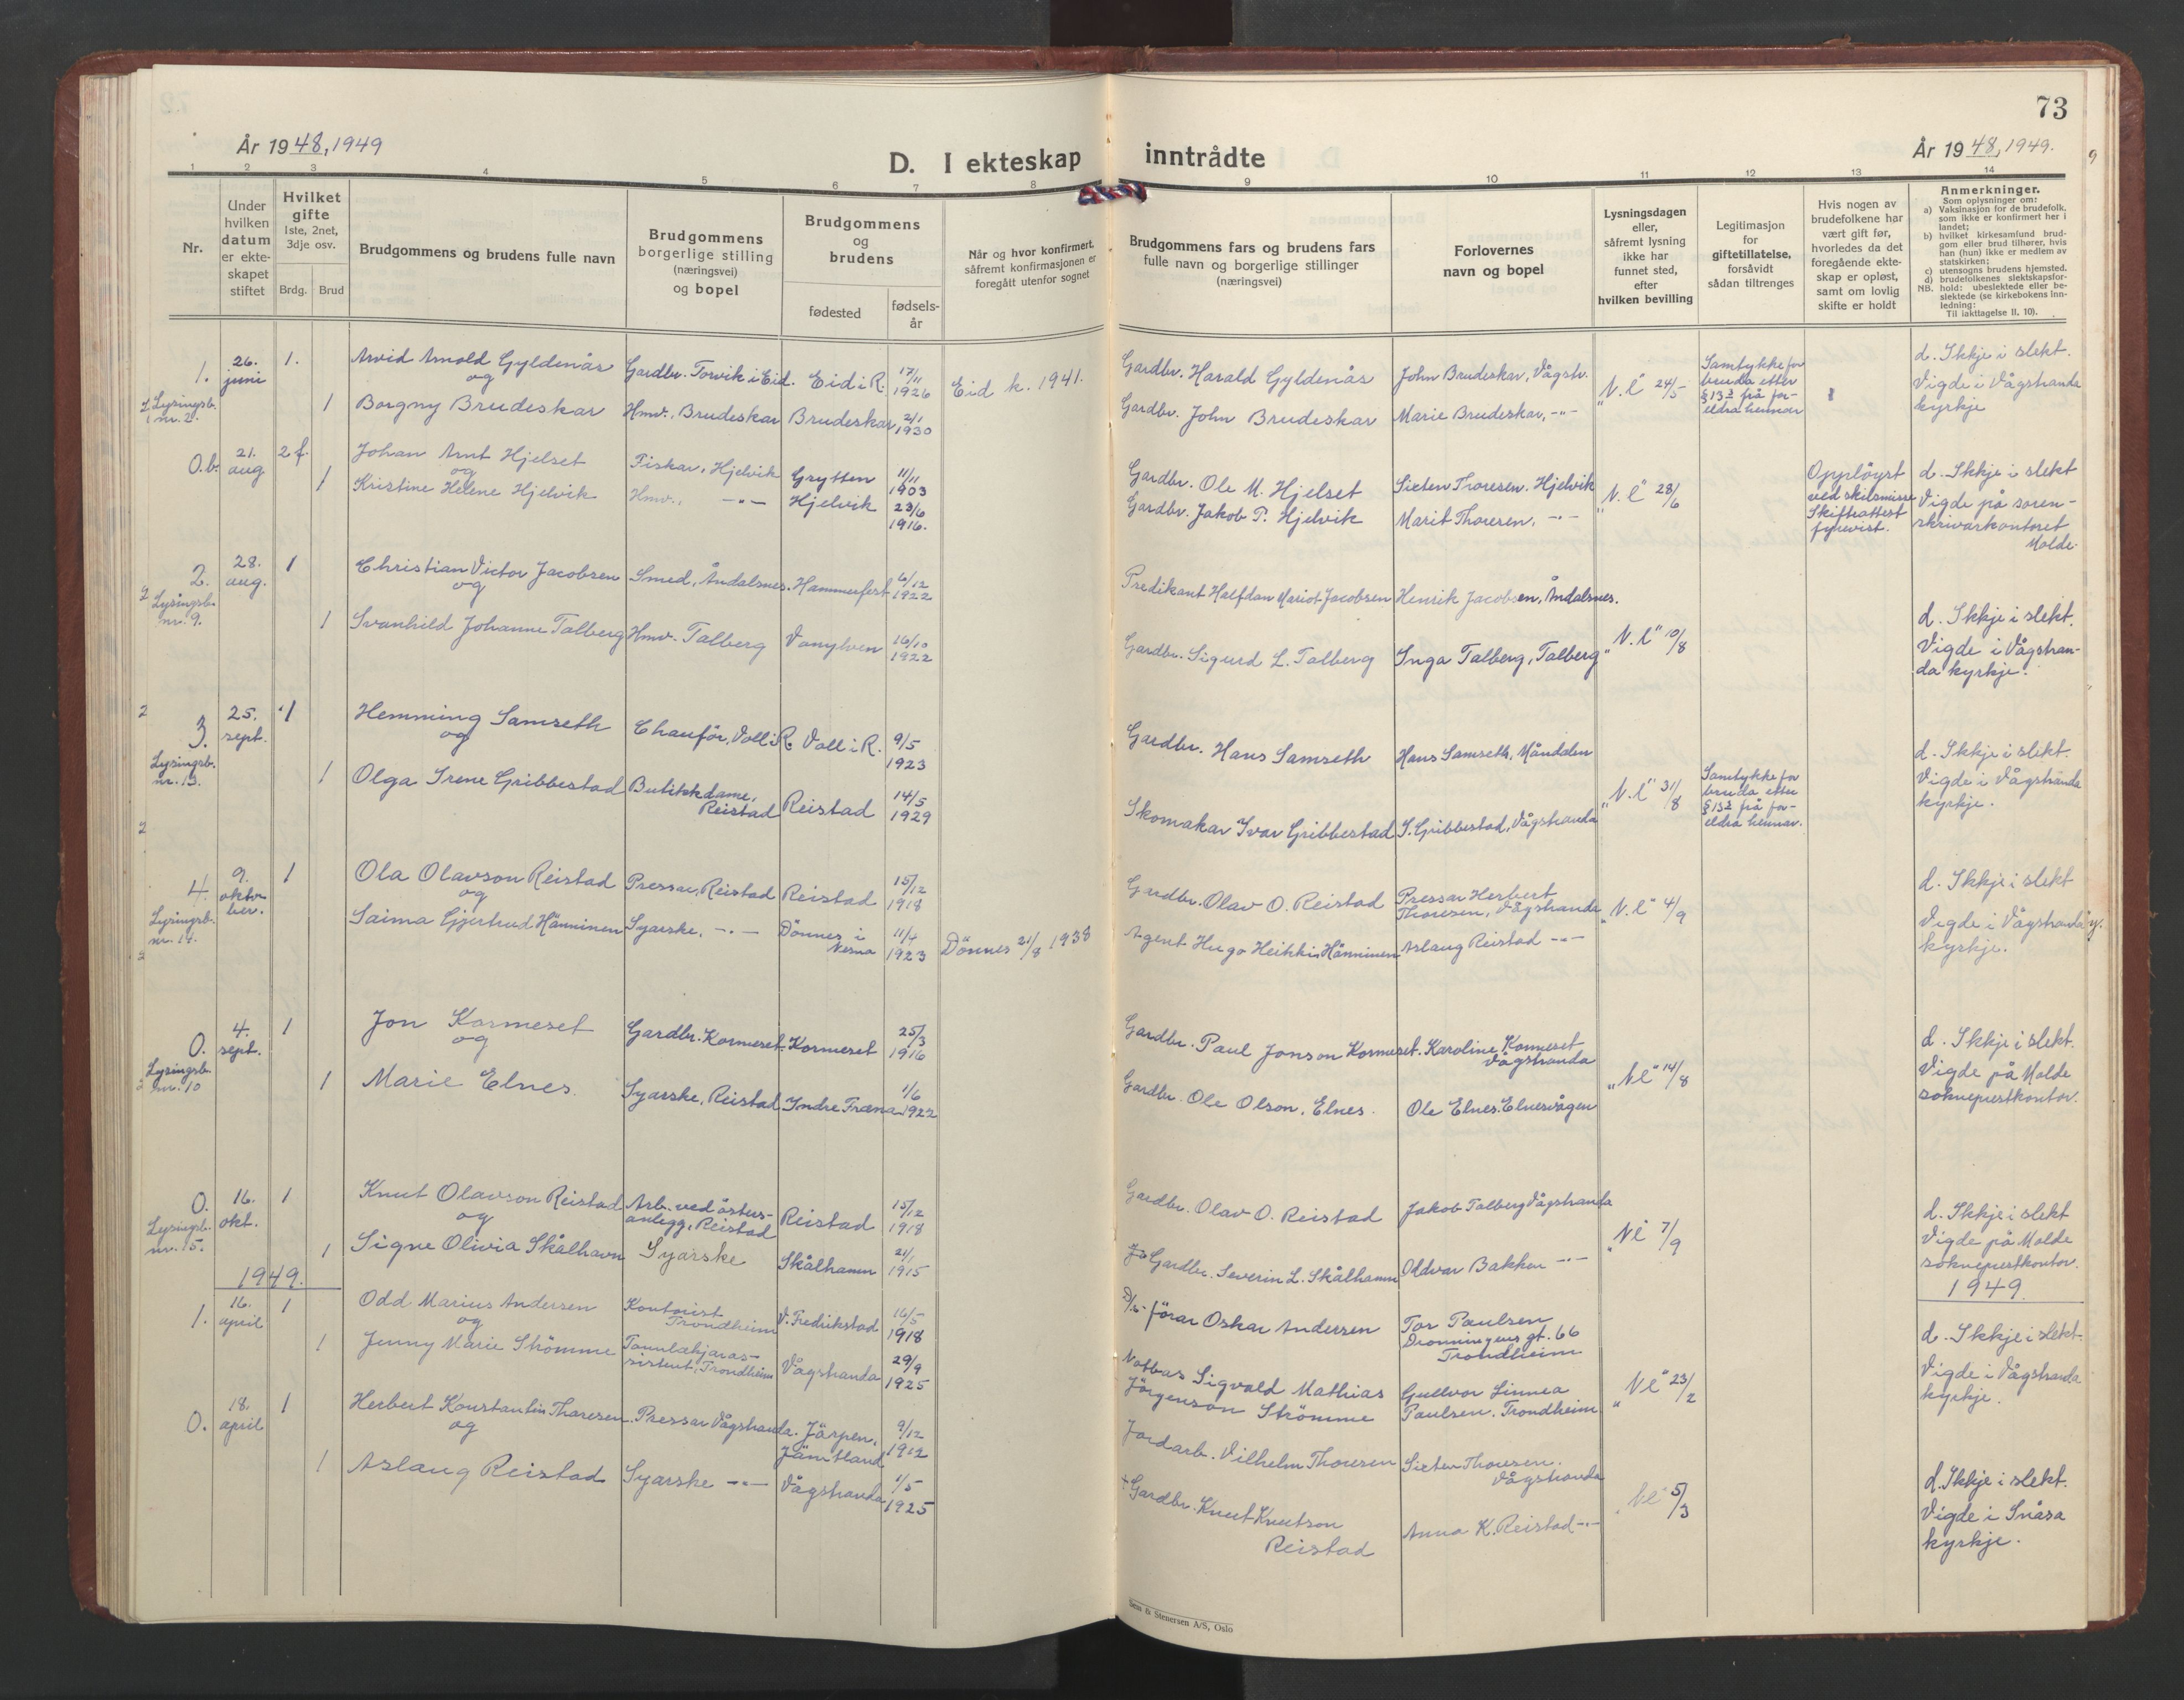 73
År 1948, 1949
D. I ekteskap inntrådte
År 1948, 1949.
1 2 3 4 5 6 7 8 9 10 11 12 13 14
Nr.
Under
hvilken
datum
er ekte-
skapet
stiftet
Hvilket
gifte
1ste, 2net,
3dje osv.
Brdg. Brud
Brudgommens og brudens fulle navn
Brudgommens
borgerlige stilling
(næringsvei)
og bopel
Brudgommens
og
brudens
fødested
fødsels-
år
Når og hvor konfirmert,
såfremt konfirmasjonen er
foregått utenfor sognet
Brudgommens fars og brudens fars
fulle navn og borgerlige stillinger
(næringsvei)
Forlovernes
navn og bopel
Lysningsdagen
eller,
såfremt lysning
ikke har
funnet sted,
efter
hvilken bevilling
Legitimasjon
for
giftetillatelse,
forsåvidt
sådan tiltrenges
Hvis nogen av
brudefolkene har
vært gift før,
hvorledes da det
foregående ekte-
skap er opløst,
samt om lovlig
skifte er holdt
Anmerkninger.
Som oplysninger om:
a) Vaksinasjon for de brudefolk,
som ikke er konfirmert her i
landet;
b) hvilket kirkesamfund brud-
gom eller brud tilhører, hvis
han (hun) ikke er medlem av
statskirken;
c) utensogns brudens hjemsted.
d) brudefolkenes slektskapsfor-
NB. hold: ubeslektede eller be-
slektede (se kirkebokens inn-
ledning:
Til iakttagelse II, 10).
1. 26. juni 1. Arvid Arnold Gyldenås Gardbr. Torvik i Eid. Eid i R. 17/11 1926 Eid k. 1941.
og
Lysingsb. nr. 2. 1 Borgny Brudeskar Hmv., Brudeskar Brudeskar 2/1 1930
Gardbr. Harald Gyldenås John Brudeskar, Vågstr.
Gardbr. John Brudeskar Marie Brudeskar, -"-
"N.l" 24/5
Samtykke for
bruda etter
§ 13 2 frå for-
eldra hennar
d. Ikkje i slekt.
Vigde i Vågstranda
kyrkje
0.b. 21. aug 2 f. Johan Arnt Hjelset Fiskar, Hjelvik Grytten 11/11 1903
og
1 Kristine Helene Hjelvik Hmv., -"- Hjelvik 23/6 1916.
Gardbr. Ole M. Hjelset Sixten Thoresen, Hjelvik
Gardbr. Jakob P. Hjelvik Marit Thoresen, -"-
"N.l" 28/6
Opplöyst
ved skilsmisse
Skifteattest
fyrevist.
d. Ikkje i slekt
Vigde på soren-
skrivarkontoret
Molde.
2. 28. aug. 1 Christian Victor Jacobsen Smed, Åndalsnes. Hammerfest 6/12 1922
og
Lysingsb. nr. 9. 1 Svanhild Johanne Talberg Hmv. Talberg Vanylven 16/10 1922
Predikant Halfdan Mariot Jacobsen Henrik Jacobsen, Åndalsnes.
Gardbr. Sigurd L. Talberg Inga Talberg, Talberg
"N.l" 10/8
d. Ikkje i slekt.
Vigde i Vågstran-
da kyrkje.
3. 25. sept. 1 Hemming Samseth Chaufør, Voll i R. Voll i R. 9/5 1923
og
Lysingsb. nr. 13. 1 Olga Irene Gribbestad Butikkdame, Reistad Reistad 14/5 1929
Gardbr. Hans Samseth Hans Samseth, Måndalen
Skomakar Ivar Gribbestad I. Gribbestad, Vågstranda
"N.l" 31/8
Samtykke for
bruda etter
§ 13 2 frå for-
eldra hennar.
d. Ikkje i slekt.
Vigde i Vågstranda
kyrkje.
4. 9. oktober. 1 Ola Olavson Reistad Pressar, Reistad Reistad 15/12 1918
og
Lysingsb. nr. 14. Saima Gjertrud Hänninen Syarske, -"- Dönnes i Nesna 11/4 1923 Dönnes 21/8 1938
Gardbr. Olav O. Reistad Pressar Herbert
Thoresen, Vågstranda
Agent Hugo Heikkin Hänninen Aslaug Reistad -"-
"N.l" 4/9
d. Ikkje i slekt
Vigde i Vågstranda
kyrkje.
0. 4. sept. 1 Jon Kormeset Gardbr. Kormeset. Kormeset 25/3 1916
og
Lysingsb. nr. 10 1 Marie Elnes. Syarske, Reistad Indre Fræna 1/6 1922
Gardbr. Paul Jonson Kormeset. Karoline Kormeset
Vågstranda
Gardbr. Ole Olson, Elnes. Ole Elnes. Elnesvågen
"Nl" 14/8
d. Ikkje i slekt.
Vigde på Molde
sokneprestkontor.
0. 16. okt. 1 Knut Olavson Reistad Arb. ved østers-
anlegg, Reistad Reistad 15/12 1918
og
Lysingsb. nr. 15. 1 Signe Olivia Skålhavn Syarske Skålhamn 21/1 1915
Gardbr. Olav O. Reistad Jakob Talberg Vågstranda
Gardbr. Severin L. Skålhamn Oddvar Bakken -"-
"Nl" 7/9
d. Ikkje i slekt
Vigde på Molde
sokneprestkontor.
1949.
1949.
1. 16. april 1 Odd Marius Andersen Kontorist Trondheim V. Fredrikstad 16/5 1918
og
1 Jenny Marie Strömme Tannlækjaras-
sistent, Trondheim Vågstranda 29/9 1925
D/s- förar Oskar Andersen Tor Paulsen
Dronningens gt. 66
Trondheim
Notbas Sigvald Mathias Gullvor Linnea
Jörgenson Strömme Paulsen. Trondheim
"Nl" 23/2
d. Ikkje i slekt.
Vigde i Vågstranda
kyrkje.
0. 18. april 1 Herbert Konstantin Thoresen. Pressar Vågstranda. Järpen, Jämtland 9/12 1912
og
1 Aslaug Reistad Syarske -"- Vågstranda 1/5 1925
Jordarb. Vilhelm Thoresen Sixten Thoresen.
Vågstranda
Gardbr. Knut Knutson
Reistad Anna K. Reistad -"-
"Nl" 5/3
d. Ikkje i slekt.
Vigde i Snåsa
kyrkje.
Sem & Stenersen A/S, Oslo